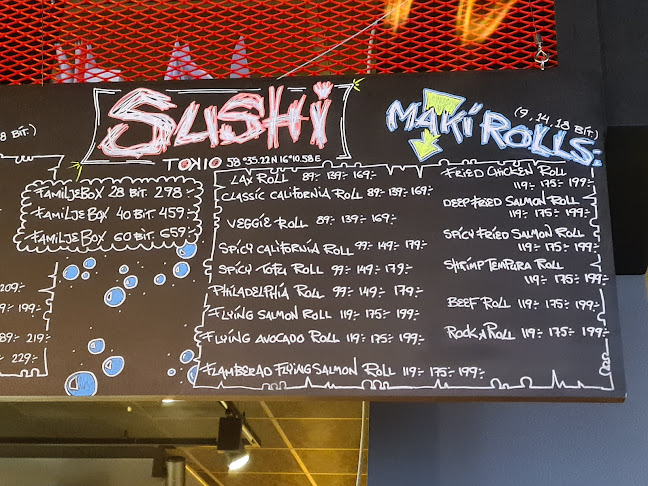 SUSHI
MAKI ROLLS:
(9, 14, 18 BIT.)
8 BIT.)
TOKIO 58°35.22N 16°10.58E
FAMILJEBOX 28 BIT. 298:-
FAMILJEBOX 40 BIT 459:-
FAMILJEBOX 60 BIT 659:-
209:-
199:-
89:- 219:-
229:-
LAX ROLL 89:- 139:- 169:-
CLASSIC CALIFORNIA ROLL 89:- 139:- 169:-
VEGGIE ROLL 89:- 139:- 169:-
SPICY CALIFORNIA ROLL 99:- 149:- 179:-
SPICY TOFU ROLL 99:- 149:- 179:-
PHILADELPHIA ROLL 99:- 149:- 179:-
FLYING SALMON ROLL 119:- 175:- 199:-
FLYING AVOCADO ROLL 119:- 175:- 199:-
FLAMBERAD FLYING SALMON ROLL 119:- 175:- 199:-
FRIED CHICKEN ROLL
119:- 175:- 199:-
DEEP FRIED SALMON ROLL
119:- 175:- 199:-
SPICY FRIED SALMON ROLL
119:- 175:- 199:-
SHRIMP TEMPURA ROLL
119:- 175:- 199:-
BEEF ROLL 119:- 175:- 199:-
ROCK N ROLL 119:- 175:- 199:-